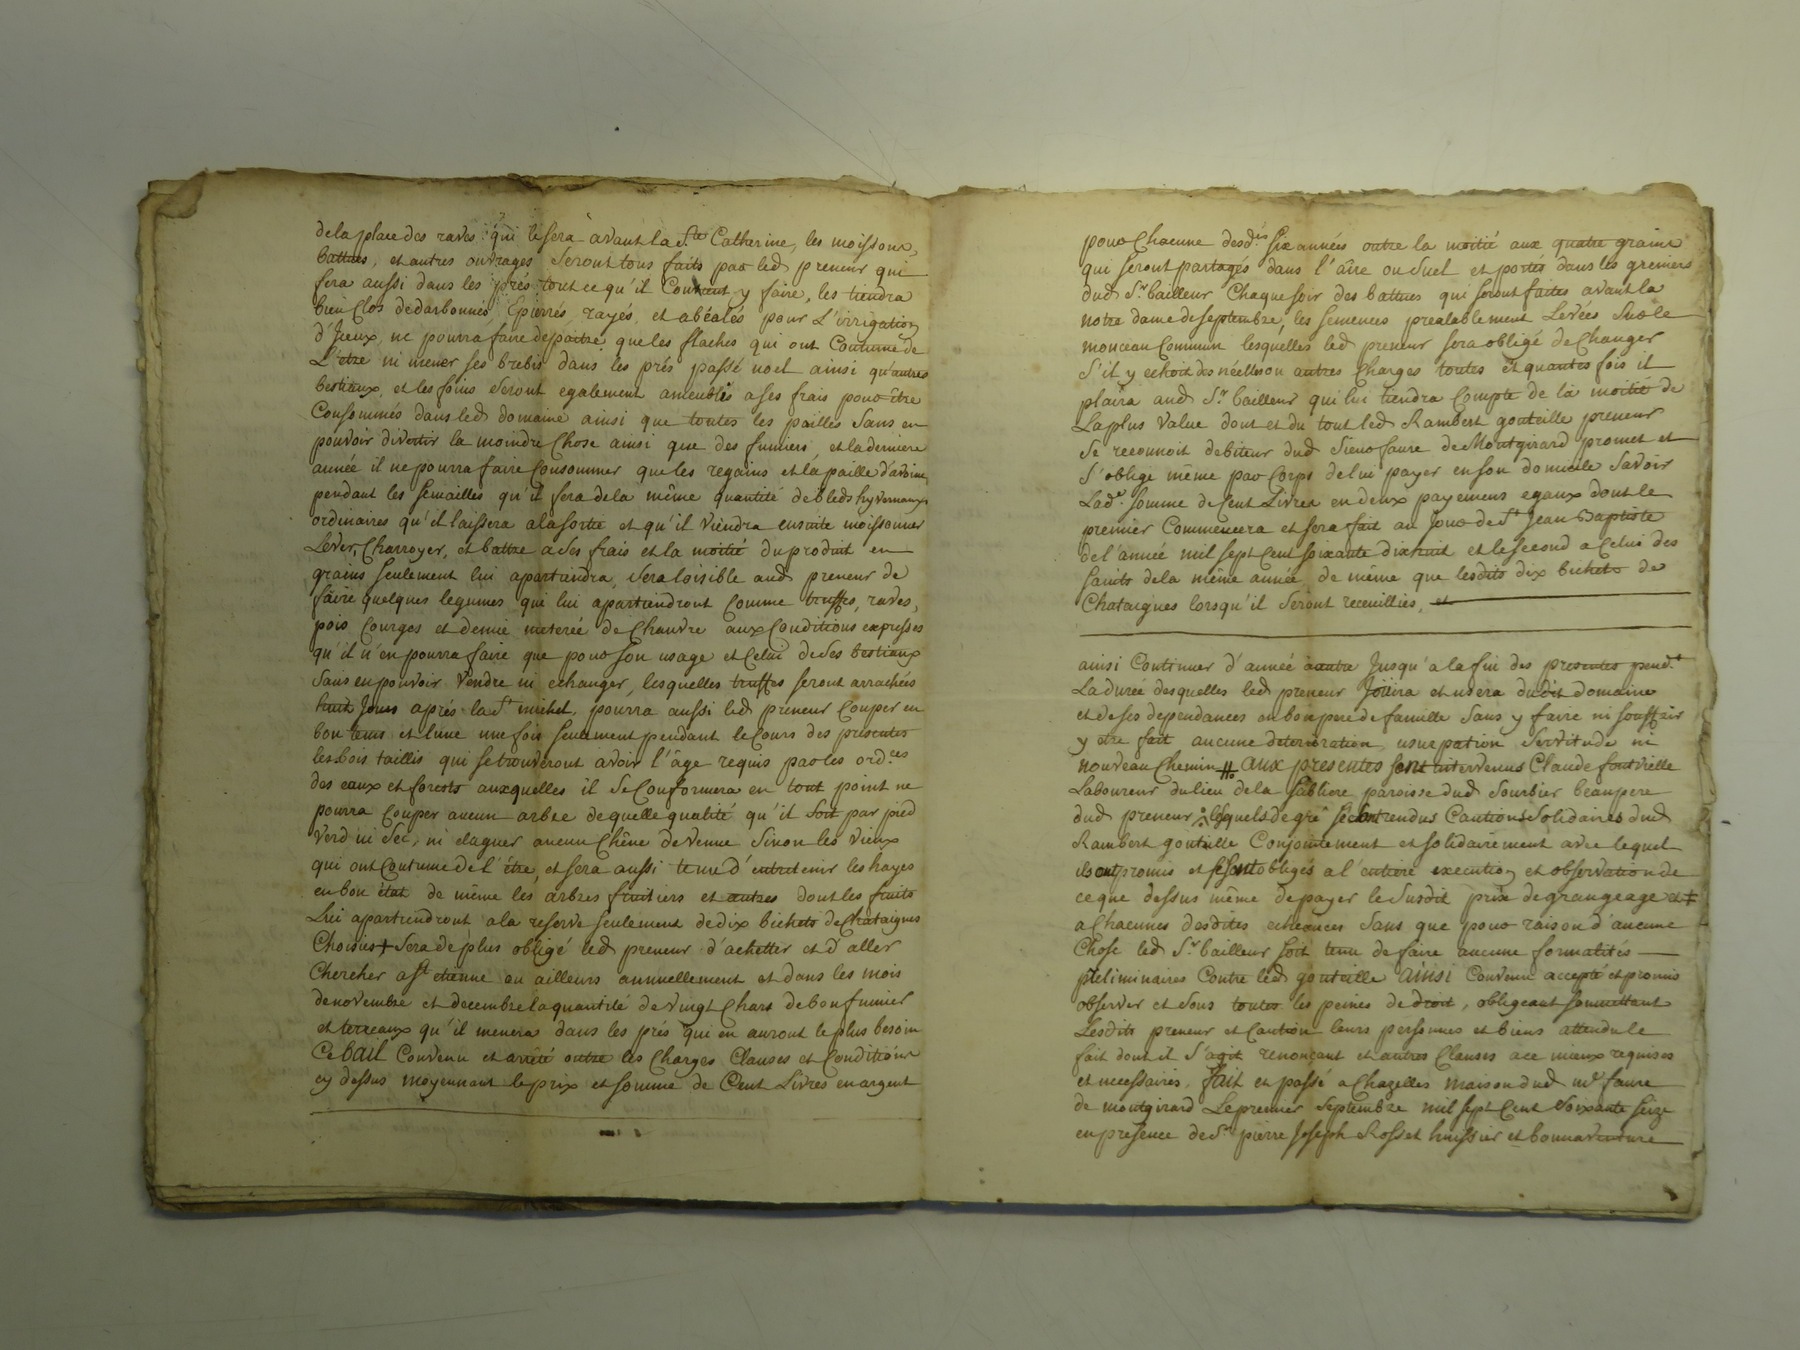 de la place des raves qui le sera avant la Ste Catherine, les moissons,
battues, et autres ouvrages seront tous faits par led preneur qui
fera aussi dans les prés tout ce qu'il Convient y faire, les tiendra
bien Clos dedarbonnés Epierrés, rayés, et abéalés pour L'irrigation
d'Jceux, ne pourra faire depaitre que les flaches qui ont Coutume de
L'etre ni mener ses brebis dans les prés passé noel ainsi qu'autres
bestiaux, et les foins seront egalement ameublés a ses frais pour être
Consommés dans led domaine ainsi que toutes les pailles sans en
pouvoir divertir la moindre Chose ainsi que des fumiers, et la derniere
année il ne pourra faire Consommer que les regains et la paille d'avoine
pendant les semailles qu'il fera de la même quantité de bleds hyvernaux
ordinaires qu'il laissera a la sortie et qu'il viendra ensuite moissonner
Lever, Charroyer, et battre a ses frais et la moitié du produit en
grains seulement lui apartiendra, sera loisible aud preneur de
faire quelques legumes qui lui apartiendront Comme truffes, raves,
pois Courges et demie meterée de Chanvre aux Conditions expresses
qu'il n'en pourra faire que pour son usage et Celui de ses bestiaux
sans en pouvoir vendre ni echanger, lesquelles truffes seront arrachées
huit Jours aprés la St michel, pourra aussi led preneur Couper en
bon tems et lune une fois seulement pendant le Cours des presentes
les bois taillis qui se trouveront avoir l'âge requis par les ord.ces
des eaux et forests auxquelles il se Conformera en tout point ne
pourra Couper aucun arbre de quelle qualité qu'il soit par pied
verd ni sec, ni elaguer aucun Chêne de venue sinon les vieux
qui ont Coutume de l'être, et sera aussi tenu d'entretenir les hayes
en bon état de même les arbres fruitiers et autres dont les fruits
Lui apartiendront a la reserve seulement de dix bichets de Chataignes
Choisies + sera de plus obligé led preneur d'achetter et d'aller
Chercher a St etienne ou ailleurs annuellement et dans les mois
de novembre et decembre la quantité de vingt Chars de bon fumier
et terreaux qu'il menera dans les prés qui en auront le plus besoin
Ce bail Convenu et arrêté outre les Charges Clauses et Conditions
cy dessus moyennant le prix et somme de Cent Livres en argent
pour Chacune desd.es six années outre la moitié aux quatre grains
qui seront partagés dans l'aire ou suel et portés dans les greniers
dud Sr bailleur, Chaque soir des battues qui seront faites avant la
notre dame de septembre, les semences prealablement Levées sur le
monceau Commun lesquelles led preneur sera obligé de Changer
s'il y echoit des néelles ou autres Charges toutes et quantes fois il
plaira aud Sr bailleur qui lui tiendra Compte de la moitié de
La plus value dont et du tout led Rambert gouteille preneur
se reconnoit debiteur dud Sieur faure de Montgirard promet et
s'oblige même par Corps de lui payer en son domicile savoir
Lad.e somme de Cent Livres en deux payemens egaux dont le
premier Commencera et sera fait au Jour de St Jean Baptiste
de l'année mil sept Cent soixante dixhuit et le second a Celui des
saints de la même année de même que lesdits dix bichets de
Chataignes lorsqu'il seront receuillies, et
ainsi Continuer d'année a autre Jusqu'a la fin des presentes pend.t
La durée desquelles led preneur Joüira et usera dudit domaine
et de ses dependances en bon pere de famille sans y faire ni souffrir
y etre fait aucune deterioration usurpation servitude ni
nouveau Chemin aux presentes sont intervenus Claude foutvielle
Laboureur du lieu de la sabliere paroisse dud sourbier beaupere
dud preneur lesquels de gré se sont rendus Cautions solidaires dud
Rambert gouteille Conjointement et solidairement avec lequel
ils ont promis et se sont obligés a l'entiere execution et observation de
ce que dessus même de payer le susdit prix de grangeage
a Chacunes desdites echeances sans que pour raison d'aucune
Chose led Sr bailleur soit tenu de faire aucune formalités
preliminaires Contre led gouteille ainsi Convenu accepté et promis
observer et sous toutes les peines de droit, obligeant soumettant
Lesdits preneur et Caution leurs personnes et biens attendu le
fait dont il s'agit renonçant et autres Clauses a ce mieux requises
et necessaires. fait et passé a Chazelles maison dud mr faure
de montgirard Le premier septembre mil sept Cent soixante seize
en presence de Sr pierre Joseph Rosset huissier et bonnaventure